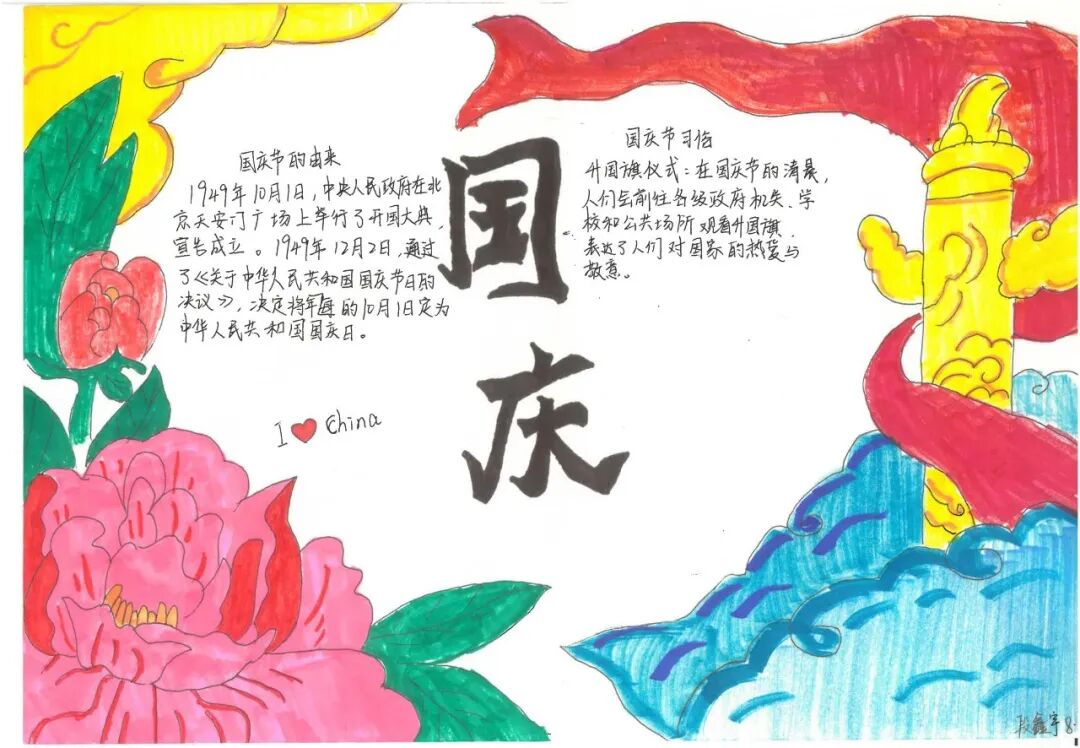 国庆节的由来
1949年10月1日，中央人民政府在北
京天安门广场上举行了开国大典，
宣告成立。1949年12月2日，通过
了《关于中华人民共和国国庆节日的
决议》，决定将每的10月1日定为
中华人民共和国国庆日。
I ❤ China
国庆
国庆节习俗
升国旗仪式：在国庆节的清晨，
人们会前往各级政府机关、学
校和公共场所观看升国旗，
表达了人们对国家的热爱与
敬意。
段鑫宇 8